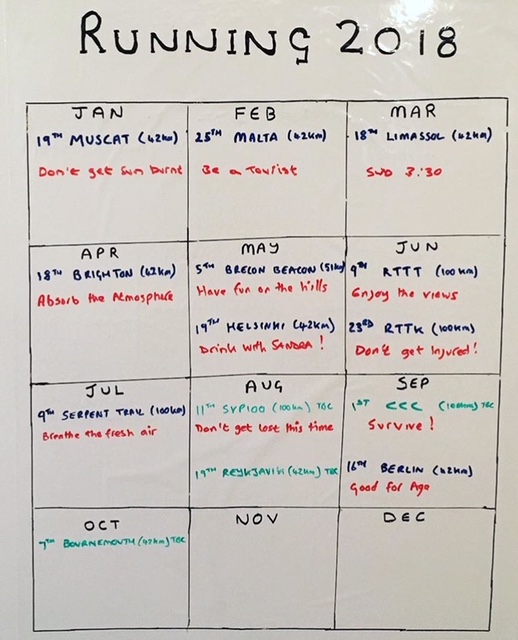 RUNNING 2018
JAN
19TH MUSCAT (42km)
Don't get sun burnt
FEB
25TH MALTA (42km)
Be a Tourist
MAR
18TH LIMASSOL (42km)
SUB 3:30
APR
18TH BRIGHTON (42km)
Absorb the Atmosphere
MAY
5TH BRECON BEACON (51km)
Have fun on the hills
19TH HELSINKI (42km)
Drink with SANDRA!
JUN
9TH RTTT (100km)
Enjoy the views
23RD RTTK (100km)
Don't get Injured!
JUL
9TH SERPENT TRAIL (100km)
Breathe the fresh air
AUG
11TH SVP100 (100km) TBC
Don't get lost this time
19TH REYKJAVIK (42km) TBC
SEP
1ST CCC (100km) TBC
Survive!
16TH BERLIN (42km)
Good for Age
OCT
7TH BOURNEMOUTH (42km) TBC
NOV
DEC